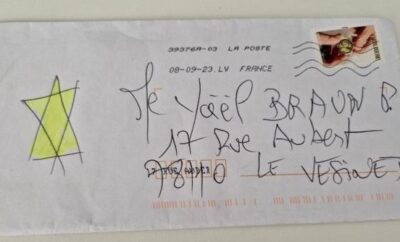 39376A-03 LA POSTE
08-09-23.LV FRANCE
Me Yaël BRAUN
17 Rue Aubert
17 RUE AUBER
78110 LE VESINE